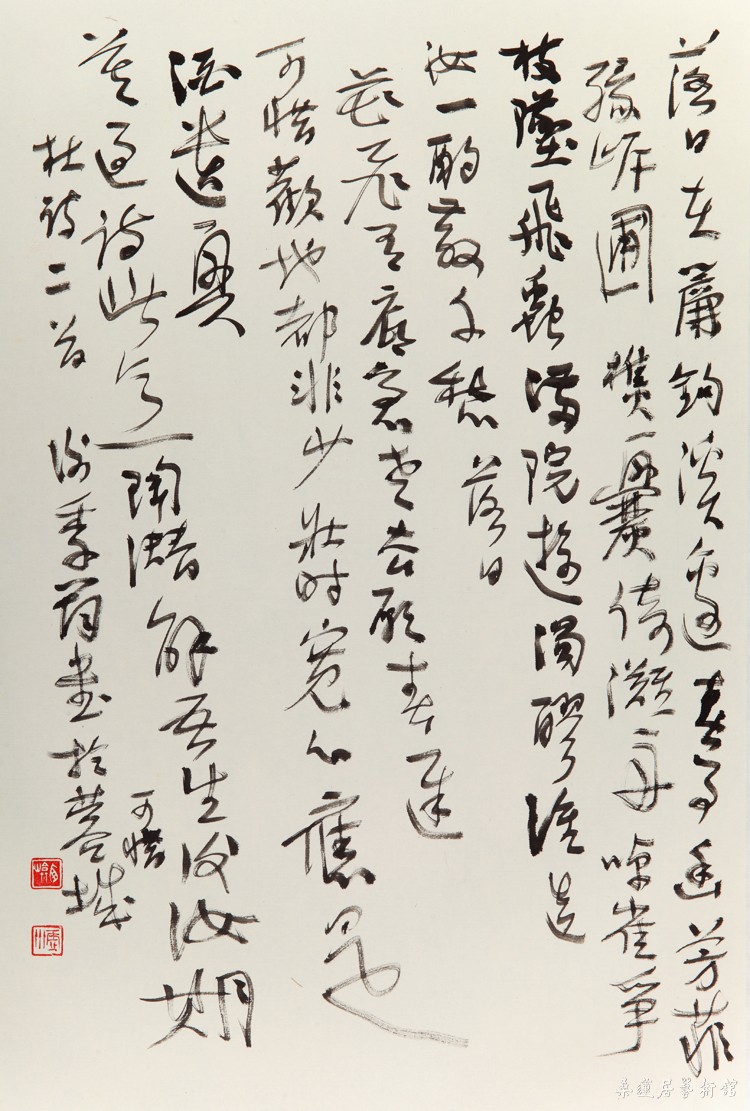 落日在簾鉤溪邊春事幽芳菲
緣岸圃樵爨倚灘舟啅雀爭
枝墜飛蟲滿院遊濁醪誰造
汝一酌散千愁 落日
花飛有底急老去願春遲
可惜歡地都非少壯時寬心應是
酒遣興
莫過詩此意陶潛解吾生後汝期
可惜
杜詩二首 謝季筠書於蓉城
桑蓮居藝術館